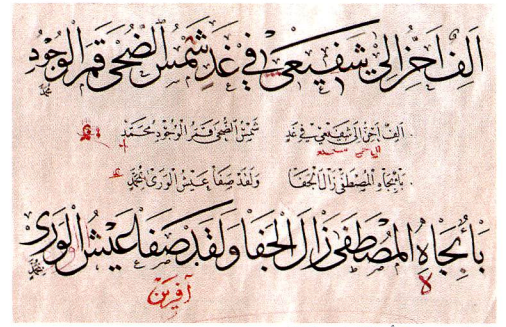 اَلِفٌ اَحِنُّ اِلىٰ شَفِيعِي فِي غَدٍ شَمْسُ الضُّحَى قَمَرُ الْوُجُودِ مُحَمَّد
اَلِفٌ اَحِنُّ اِلىٰ شَفِيعِي فِي غَدٍ شَمْسُ الضُّحَى قَمَرُ الْوُجُودِ مُحَمَّد
بَاءٌ بِجَاهِ الْمُصْطَفَى زَالَ الْجَفَا وَلَقَدْ صَفَا عَيْشُ الْوَرَى بِمُحَمَّد
بَاءٌ بِجَاهِ الْمُصْطَفَى زَالَ الْجَفَا وَلَقَدْ صَفَا عَيْشُ الْوَرَى بِمُحَمَّد
آفرين